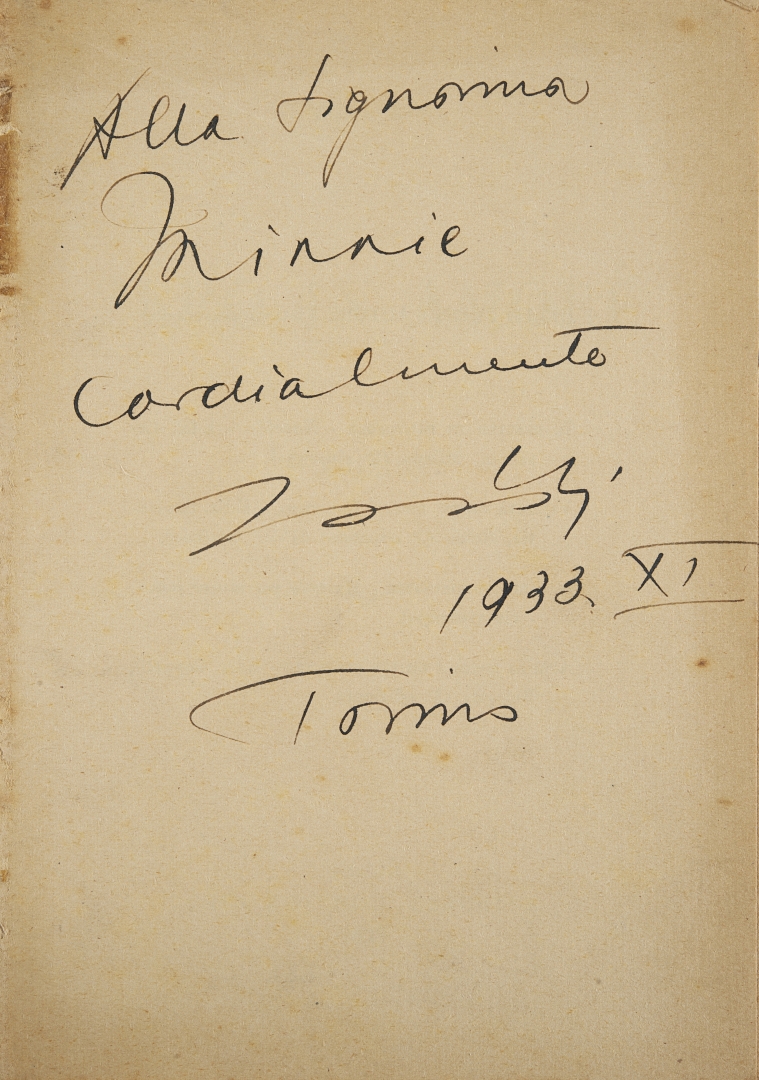 Alla Signorina
Minnie
Cordialmente
1933 XI
Torino